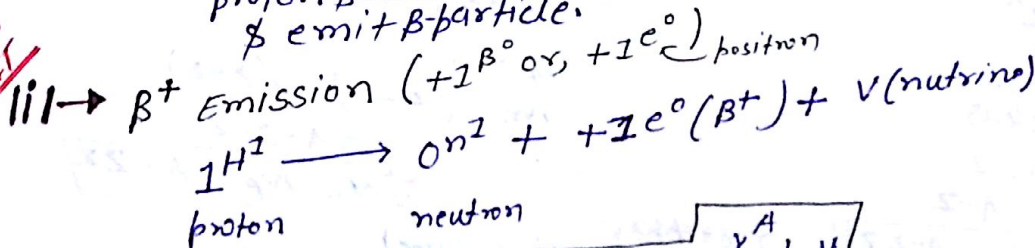 $ emit β-particle.
iii→ β⁺ Emission (+1β° or, +1e°) positron
1H¹ → 0n¹ + +1e°(β⁺) + ν (nutrino)
proton neutron
A